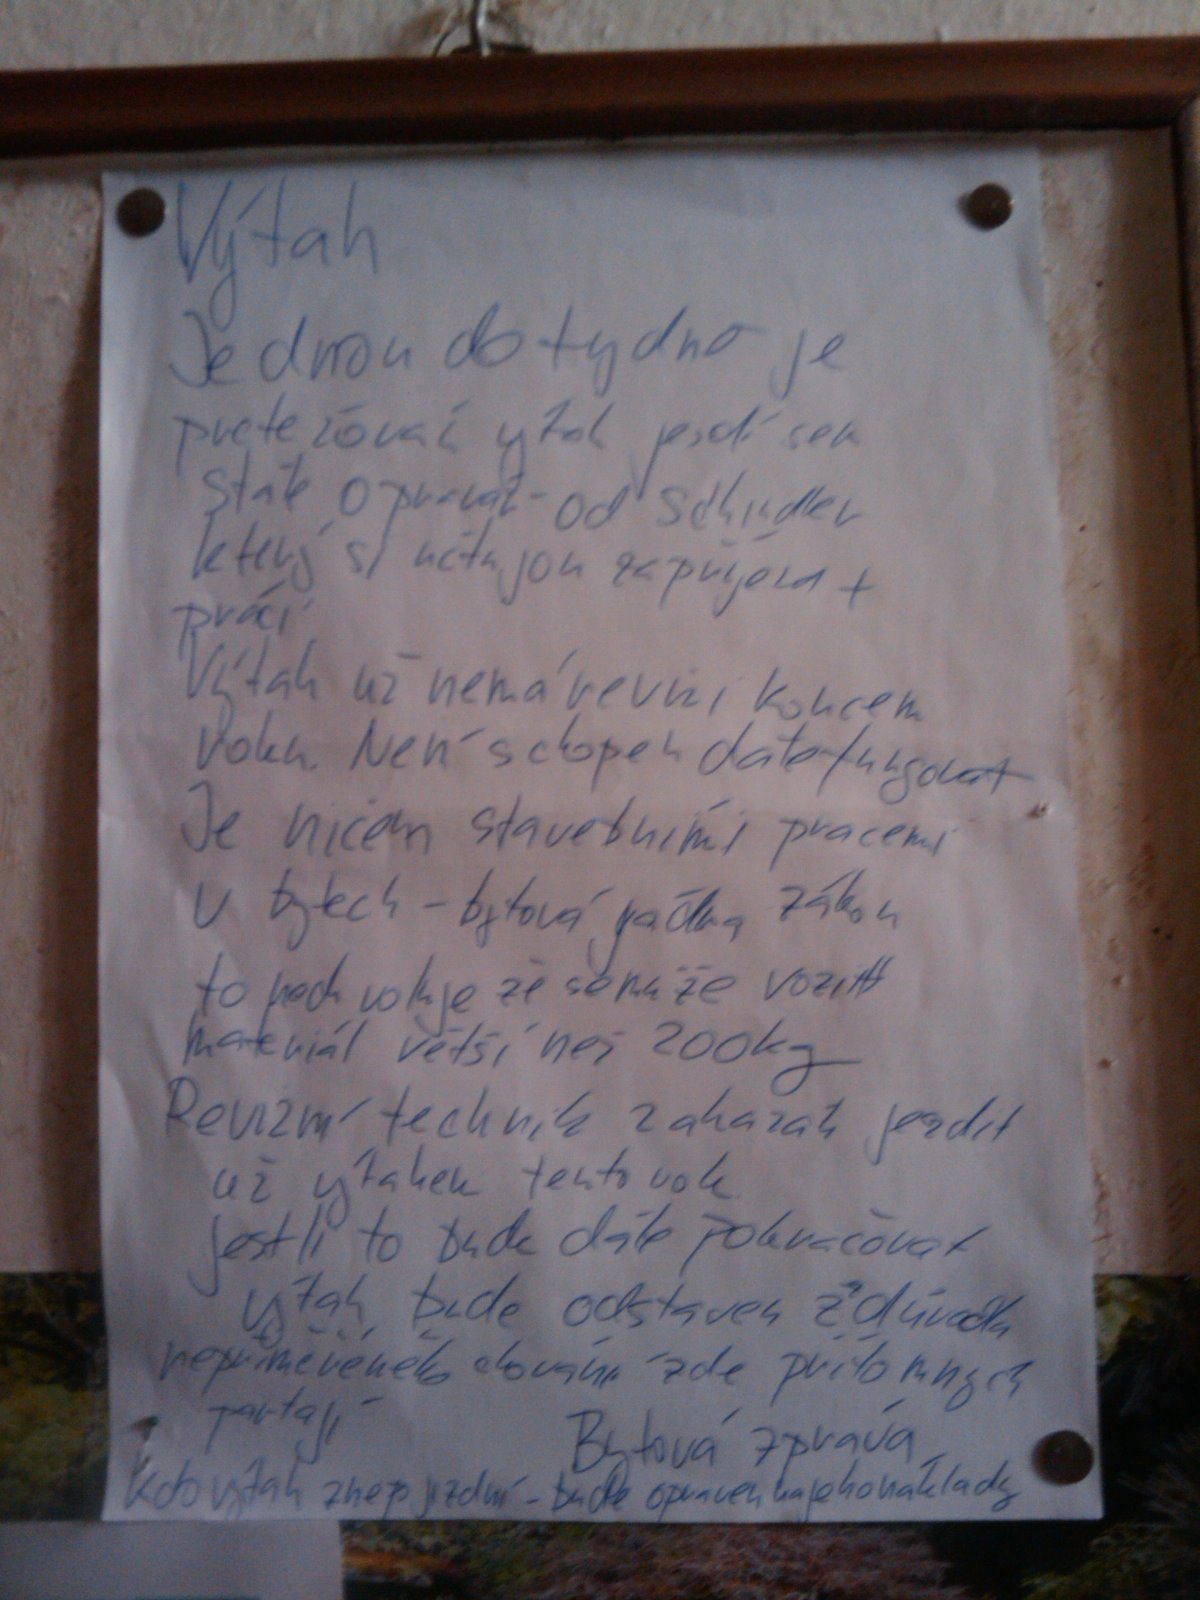 Výtah
Jednou do tydne je
pretežován výtah jezdí sem
stále opraváři od Schindler
který si učtujou za příjezd +
práci
Výtah už nemá revizi koncem
roku. Není schopen dále fungovat
Je ničen stavebními pracemi
v bytech - bytová zákon
to neodvoluje že se může vozit
materiál větší než 200kg
Revizní technik zakazal jezdit
už výtahem tento rok
jestli to bude dále pokračovat
výtah bude odstaven z důvodu
nepřiměřeného chování zde přítomných
partají
Bytová zpráva
Kdo výtah znepojízdní - bude opraven na jeho náklady